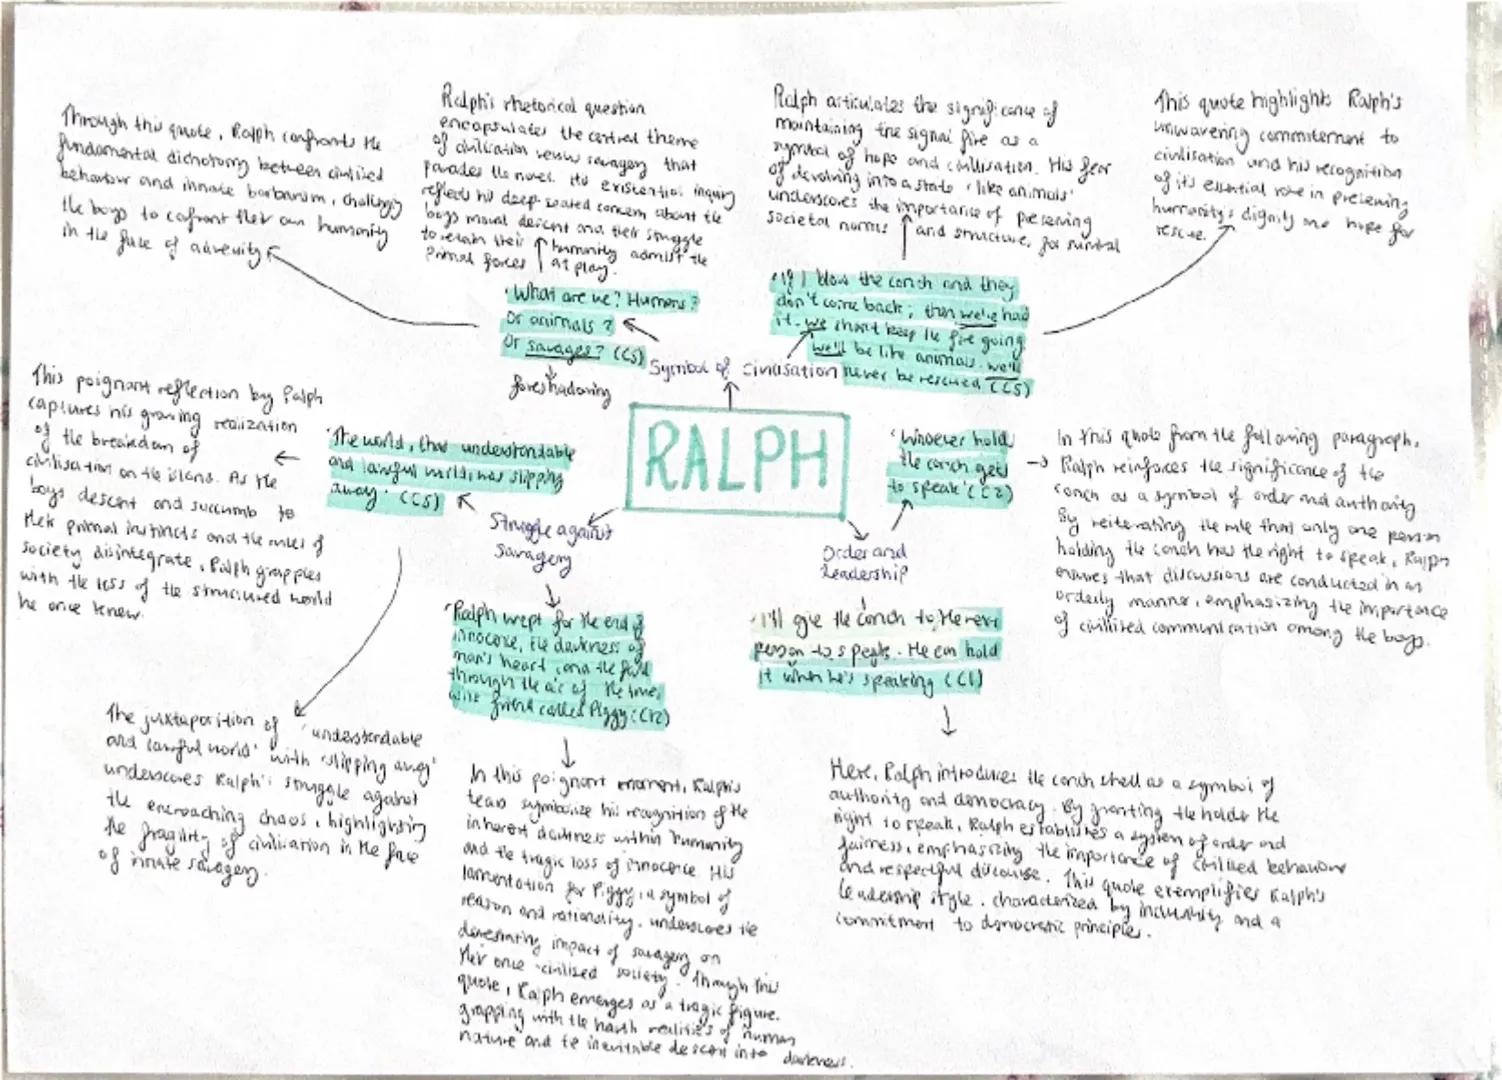 Through this quote, Ralph confronts the
fundamental dichotomy between civilised
behaviour and innate barbarism, challenging
the boys to confront their own humanity
in the face of adversity
Ralph's rhetorical question
encapsulates the central theme
of civilisation versus savagery that
pervades the novel. Its existential inquiry
reflects his deep-seated concern about the
boys moral descent and their struggle
to retain their humanity admist the
primal forces at play.
Ralph articulates the significance of
maintaining the signal fire as a
symbol of hope and civilisation. His fear
of devolving into a state 'like animals'
underscores the importance of preserving
societal norms and structure, for survival
This quote highlights Ralph's
unwavering commitement to
civilisation and his recognition
of its essential role in preserving
humanity's dignity and hope for
rescue.
'What are we? Humans?
Or animals?
Or savages? (C5)
foreshadowing
'If I blow the conch and they
don't come back; then we've had
it. We shan't keep the fire going
we'll be like animals. We'll
never be rescued (C5)
Symbol of civilisation
RALPH
This poignant reflection by Ralph
captures his growing realization
of the breakdown of
civilisation on the island. As the
boys descent and succumb to
their primal instincts and the rules of
society disintegrate, Ralph grapples
with the loss of the structured world
he once knew.
'The world, that understandable
and lawful world, was slipping
away.' (C5)
Struggle against
savagery
'Whoever holds
the conch gets
to speak' (C2)
In this quote from the following paragraph,
Ralph reinforces the significance of the
conch as a symbol of order and authority
By reiterating the rule that only one person
holding the conch has the right to speak, Ralph
ensures that discussions are conducted in an
orderly manner, emphasizing the importance
of civilised communication among the boys.
Order and
leadership
'Ralph wept for the end of
innocence, the darkness of
man's heart, and the fall
through the air of the true,
wise friend called Piggy' (C12)
'I'll give the conch to the next
person to speak. He can hold
it when he's speaking (C1)
The juxtaposition of 'understandable
and lawful world' with 'slipping away'
underscores Ralph's struggle against
the encroaching chaos, highlighting
the fragility of civilisation in the face
of innate savagery.
In this poignant moment, Ralph's
tears symbolize his recognition of the
inherent darkness within humanity
and the tragic loss of innocence. His
lamentation for Piggy, a symbol of
reason and rationality, underscores the
devastating impact of savagery on
their once civilized society. Through this
quote, Ralph emerges as a tragic figure,
grappling with the harsh realities of human
nature and the inevitable descent into darkness.
Here, Ralph introduces the conch shell as a symbol of
authority and democracy. By granting the holder the
right to speak, Ralph establishes a system of order and
fairness, emphasizing the importance of civilised behaviour
and respectful discourse. This quote exemplifies Ralph's
leadership style, characterized by inclusivity and a
commitment to democratic principles.